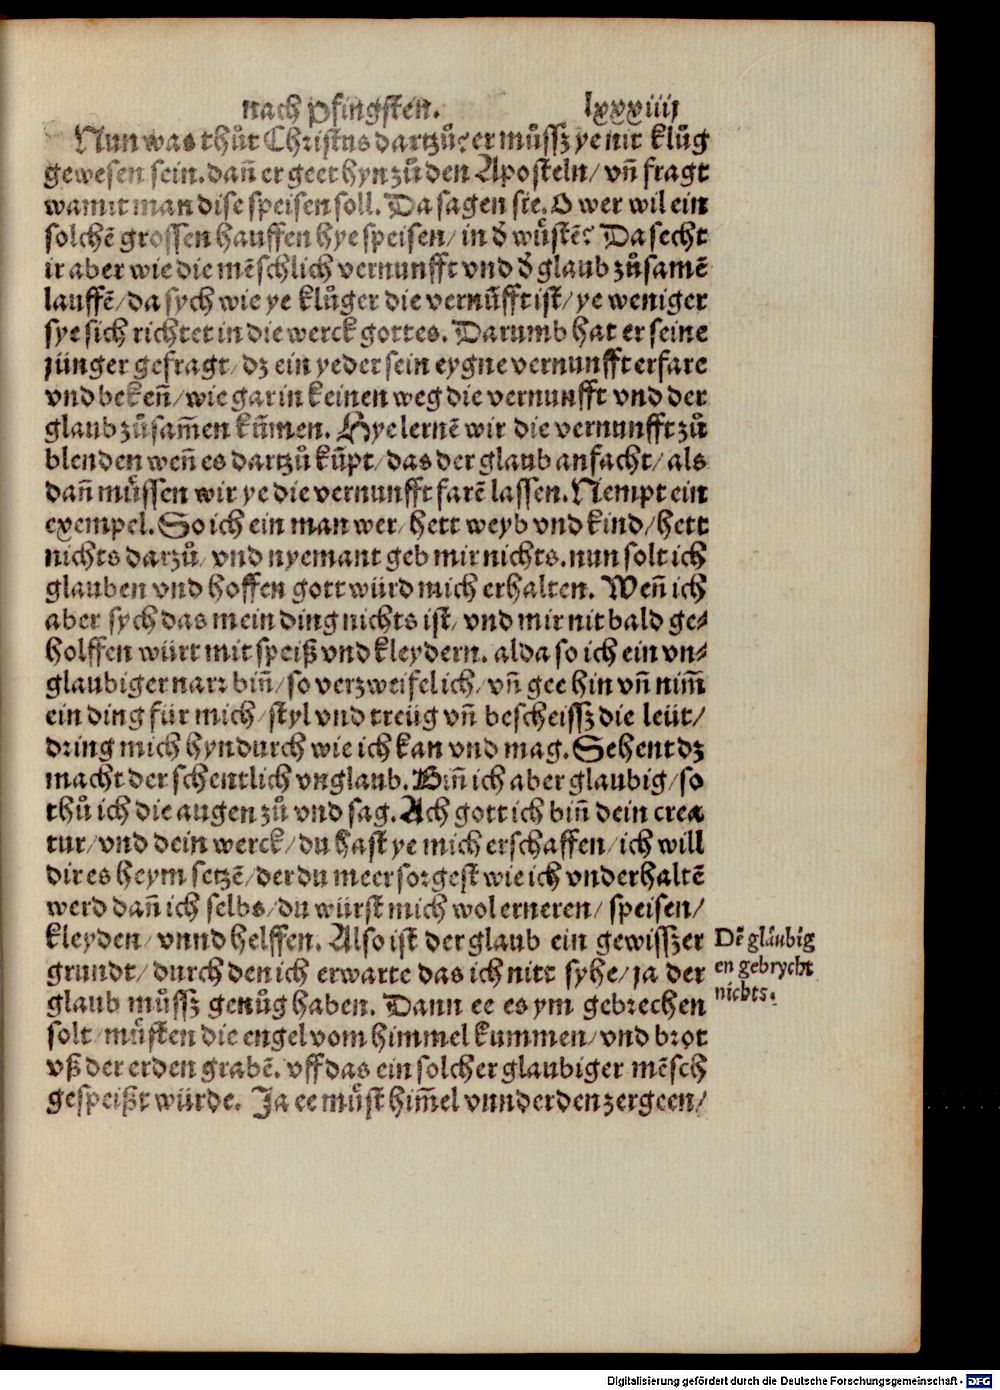 nach Pfingsten. lxxxiiij
Nun was thuͦt Christus dartzuͦ? er muͦssz ye nit kluͦg
gewesen sein. dañ er geet hyn zuͦ den Aposteln/ vñ fragt
wamit man dise speisen soll. Da sagen sie. O wer wil ein
solchē grossen hauffen hye speisen/ in d̕ wuͤstē? Da secht
ir aber wie die mēschlich vernunfft vnd d̕ glaub zuͦsamē
lauffē/ da sych wie ye kluͤger die vernūfft ist/ ye weniger
sye sich richtet in die werck gottes. Darumb hat er seine
jünger gefragt/ dz ein yeder sein eygne vernunfft erfare
vnd bekeñ/ wie gar in keinen weg die vernunfft vnd der
glaub zuͦsam̄en kūmen. Hye lernē wir die vernunfft zuͦ
blenden weñ es dartzuͦ kūpt/ das der glaub anfacht/ als
dañ muͤssen wir ye die vernunfft farē lassen. Nempt ein
exempel. So ich ein man wer/ hett weyb vnd kind/ hett
nichts darzuͦ/ vnd nyemant geb mir nichts. nun solt ich
glauben vnd hoffen gott würd mich erhalten. Weñ ich
aber sych das mein ding nichts ist/ vnd mir nit bald ge⸗
holffen würt mit speiß vnd kleydern. alda so ich ein vn⸗
glaubiger narr biñ/ so verzweifel ich/ vñ gee hin vñ nim̄
ein ding für mich/ styl vnd treüg vñ bescheissz die leüt/
dring mich hyndurch wie ich kan vnd mag. Sehent dz
macht der schentlich vnglaub. Biñ ich aber glaubig/ so
thuͦ ich die augen zuͦ vnd sag. Ach gott ich biñ dein crea
tur/ vnd dein werck/ du hast ye mich erschaffen/ ich will
dir es heym setzē/ der du meer sorgest wie ich vnderhaltē
werd dañ ich selbs/ du würst mich wol erneren/ speisen/
kleyden/ vnnd helffen. Also ist der glaub ein gewisszer
grundt/ durch den ich erwarte das ich nitt syhe/ ja der
glaub muͦssz genuͦg haben. Dann ee es ym gebrechen
solt/ muͤsten die engel vom himmel kummen/ vnd brot
vß der erden grabē. vff das ein solcher glaubiger mēsch
gespeißt würde. Ja ee muͤst him̄el vnnd erden zergeen/
Dē glaͤubig
en gebrycht
nichts.
Digitalisierung gefördert durch die Deutsche Forschungsgemeinschaft - DFG